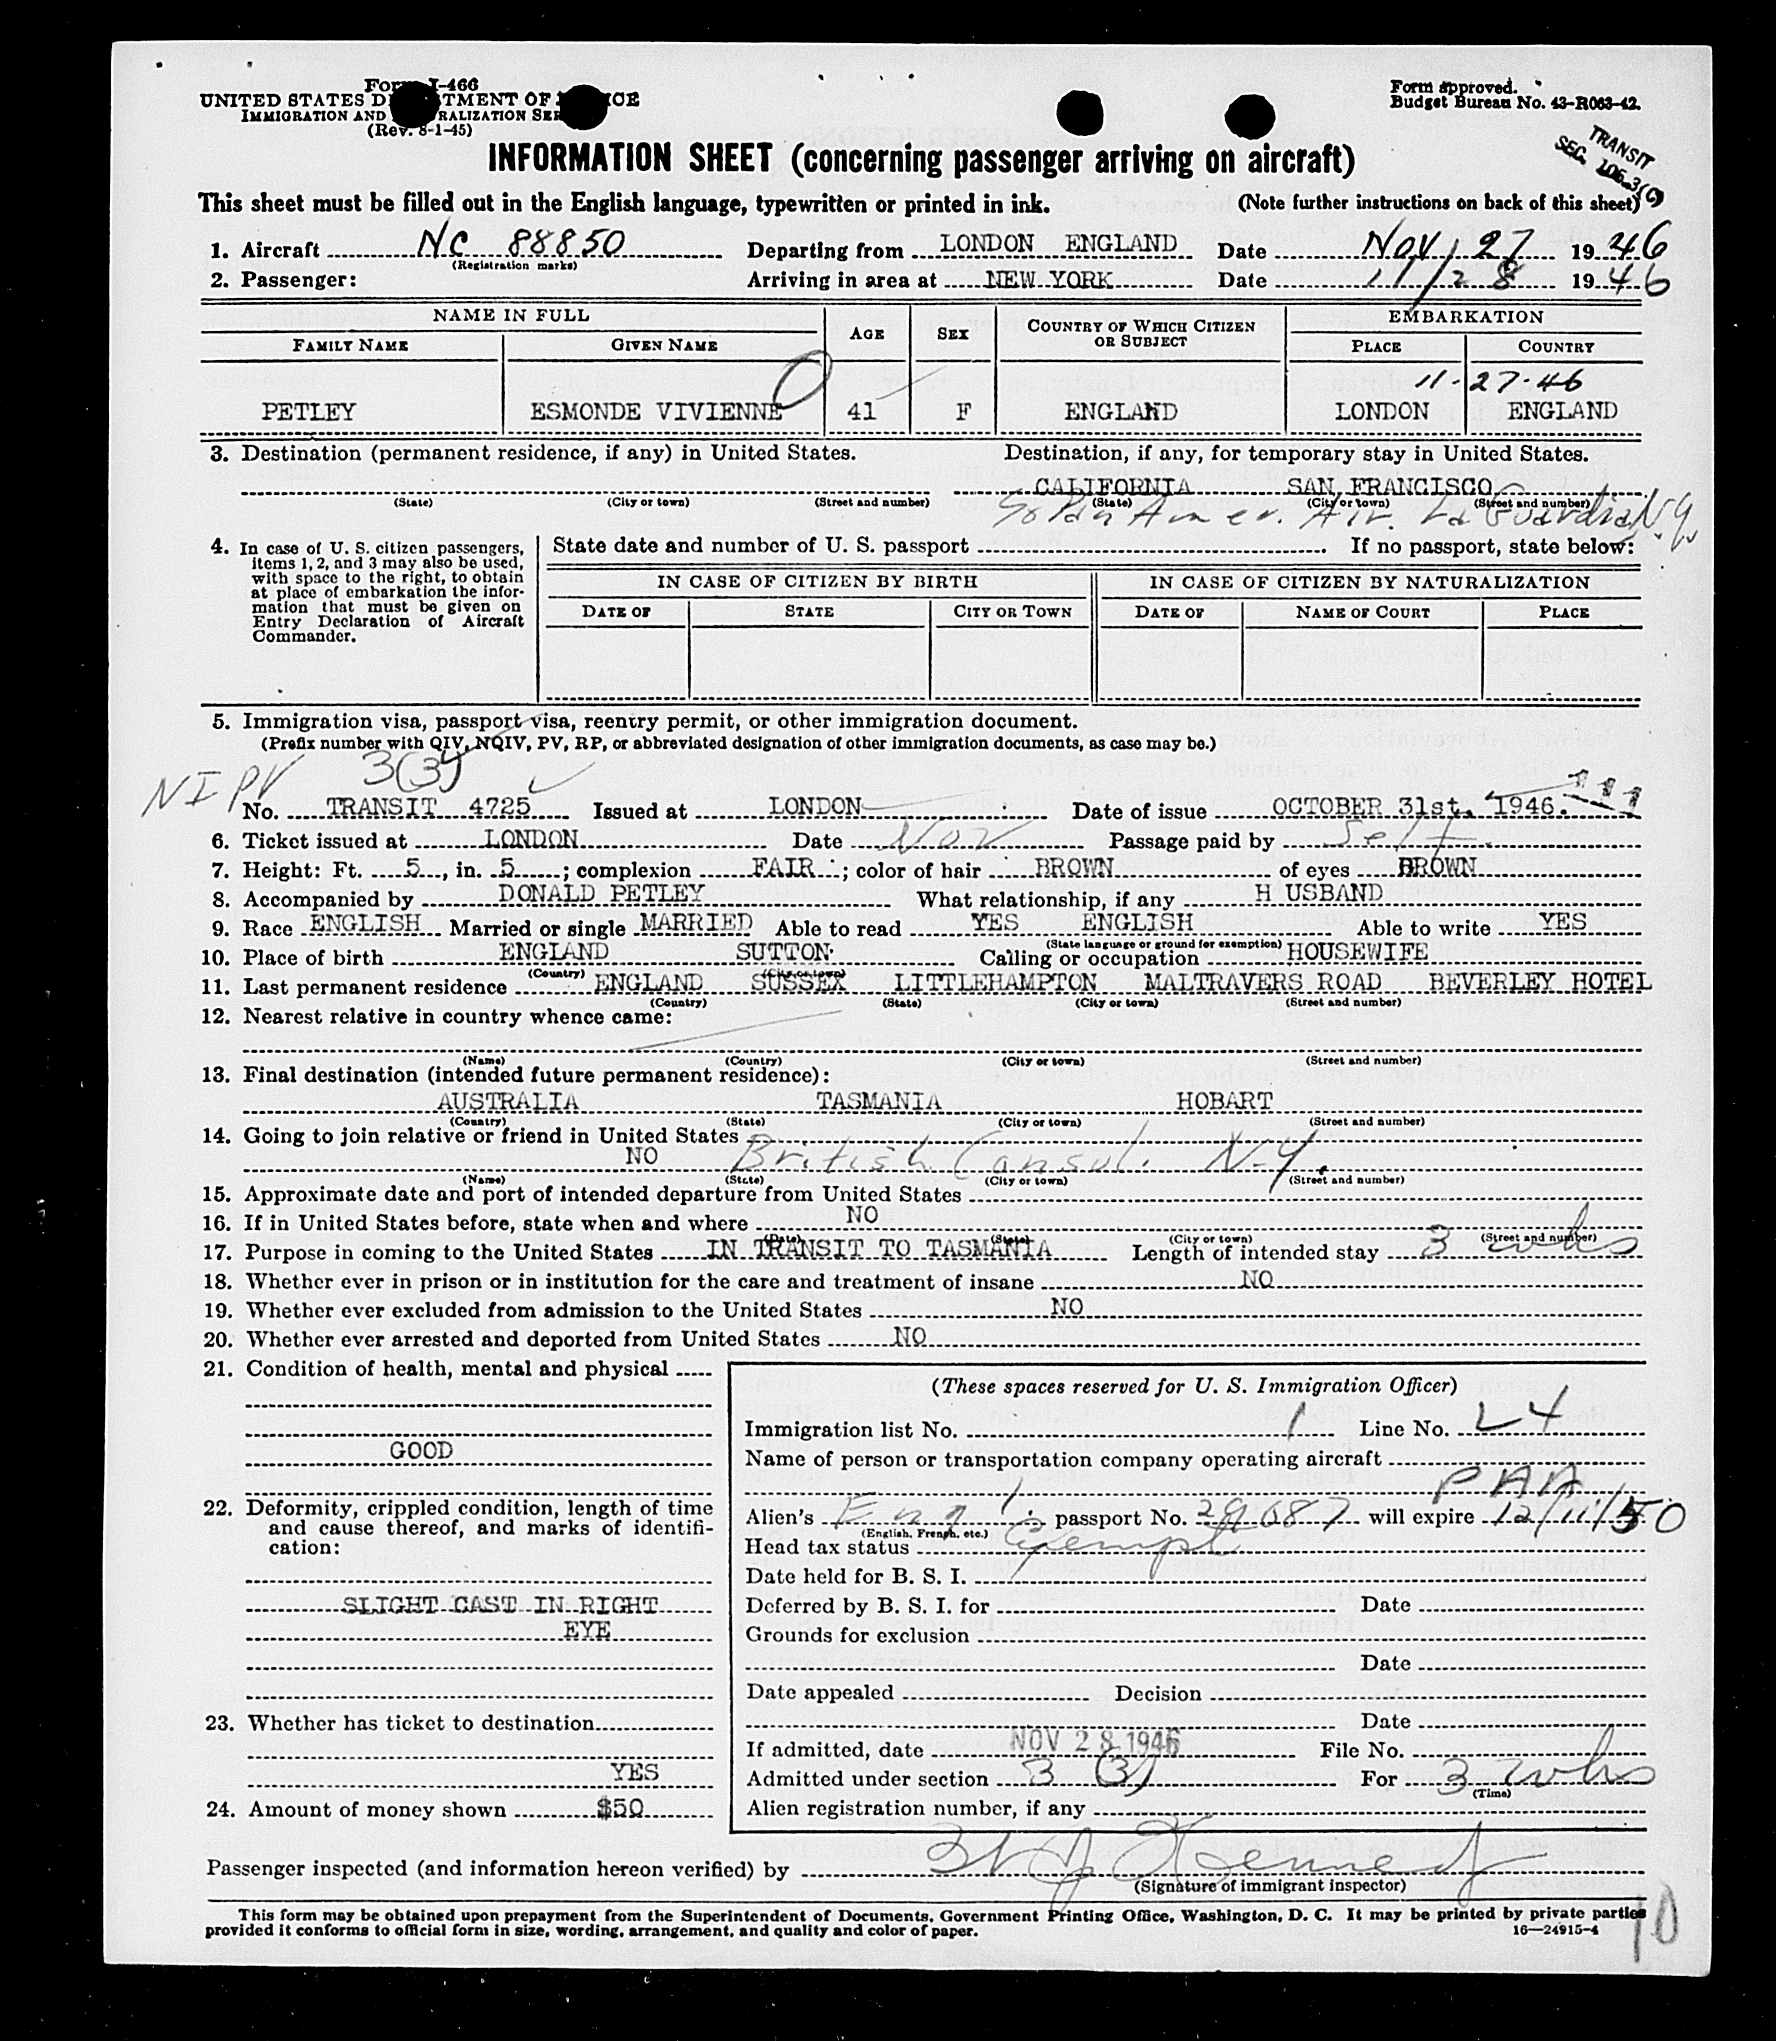 Form I-466
UNITED STATES DEPARTMENT OF JUSTICE
IMMIGRATION AND NATURALIZATION SERVICE
(Rev. 8-1-45)
Form approved.
Budget Bureau No. 43-R063-42.
TRANSIT
SEC. 106.3(C)
INFORMATION SHEET (concerning passenger arriving on aircraft)
This sheet must be filled out in the English language, typewritten or printed in ink. (Note further instructions on back of this sheet)
1. Aircraft NC 88850 Departing from LONDON ENGLAND Date Nov 27 1946
(Registration marks)
2. Passenger: Arriving in area at NEW YORK Date 11/28 1946
NAME IN FULL AGE SEX COUNTRY OF WHICH CITIZEN OR SUBJECT EMBARKATION
FAMILY NAME GIVEN NAME PLACE COUNTRY
11-27-46
PETLEY ESMONDE VIVIENNE 41 F ENGLAND LONDON ENGLAND
3. Destination (permanent residence, if any) in United States. Destination, if any, for temporary stay in United States.
CALIFORNIA SAN FRANCISCO
(State) (City or town) (Street and number) (State) (City or town) (Street and number)
Pan Amer. Air. La Guardia N.Y.
4. In case of U. S. citizen passengers, State date and number of U. S. passport If no passport, state below:
items 1, 2, and 3 may also be used,
with space to the right, to obtain
at place of embarkation the infor-
mation that must be given on
Entry Declaration of Aircraft
Commander.
IN CASE OF CITIZEN BY BIRTH IN CASE OF CITIZEN BY NATURALIZATION
DATE OF STATE CITY OR TOWN DATE OF NAME OF COURT PLACE
5. Immigration visa, passport visa, reentry permit, or other immigration document.
(Prefix number with QIV, NQIV, PV, RP, or abbreviated designation of other immigration documents, as case may be.)
NI PV 3(3)
No. TRANSIT 4725 Issued at LONDON Date of issue OCTOBER 31st. 1946.
6. Ticket issued at LONDON Date Nov Passage paid by Self
7. Height: Ft. 5, in. 5; complexion FAIR; color of hair BROWN of eyes BROWN
8. Accompanied by DONALD PETLEY What relationship, if any H USBAND
9. Race ENGLISH Married or single MARRIED Able to read YES ENGLISH Able to write YES
(State language or ground for exemption)
10. Place of birth ENGLAND SUTTON Calling or occupation HOUSEWIFE
(Country) (City or town)
11. Last permanent residence ENGLAND SUSSEX LITTLEHAMPTON MALTRAVERS ROAD BEVERLEY HOTEL
(Country) (State) (City or town) (Street and number)
12. Nearest relative in country whence came:
(Name) (Country) (City or town) (Street and number)
13. Final destination (intended future permanent residence):
AUSTRALIA TASMANIA HOBART
(Country) (State) (City or town) (Street and number)
14. Going to join relative or friend in United States
NO British Consul. N.Y.
(Name) (State) (City or town) (Street and number)
15. Approximate date and port of intended departure from United States
16. If in United States before, state when and where NO
(Date) (State) (City or town) (Street and number)
17. Purpose in coming to the United States IN TRANSIT TO TASMANIA Length of intended stay 3 wks
18. Whether ever in prison or in institution for the care and treatment of insane NO
19. Whether ever excluded from admission to the United States NO
20. Whether ever arrested and deported from United States NO
21. Condition of health, mental and physical
GOOD
22. Deformity, crippled condition, length of time
and cause thereof, and marks of identifi-
cation:
SLIGHT CAST IN RIGHT
EYE
23. Whether has ticket to destination
YES
24. Amount of money shown $50
(These spaces reserved for U. S. Immigration Officer)
Immigration list No. 1 Line No. L4
Name of person or transportation company operating aircraft
PAA
Alien's Eng. passport No. 29687 will expire 12/11/50
(English, French, etc.)
Head tax status Exempt
Date held for B. S. I.
Deferred by B. S. I. for Date
Grounds for exclusion
Date
Date appealed Decision
Date
If admitted, date NOV 28 1946 File No.
Admitted under section 3 (3) For 3 wks
(Time)
Alien registration number, if any
Passenger inspected (and information hereon verified) by Kennedy
(Signature of immigrant inspector)
This form may be obtained upon prepayment from the Superintendent of Documents, Government Printing Office, Washington, D. C. It may be printed by private parties
provided it conforms to official form in size, wording, arrangement, and quality and color of paper. 16—24915-4
10